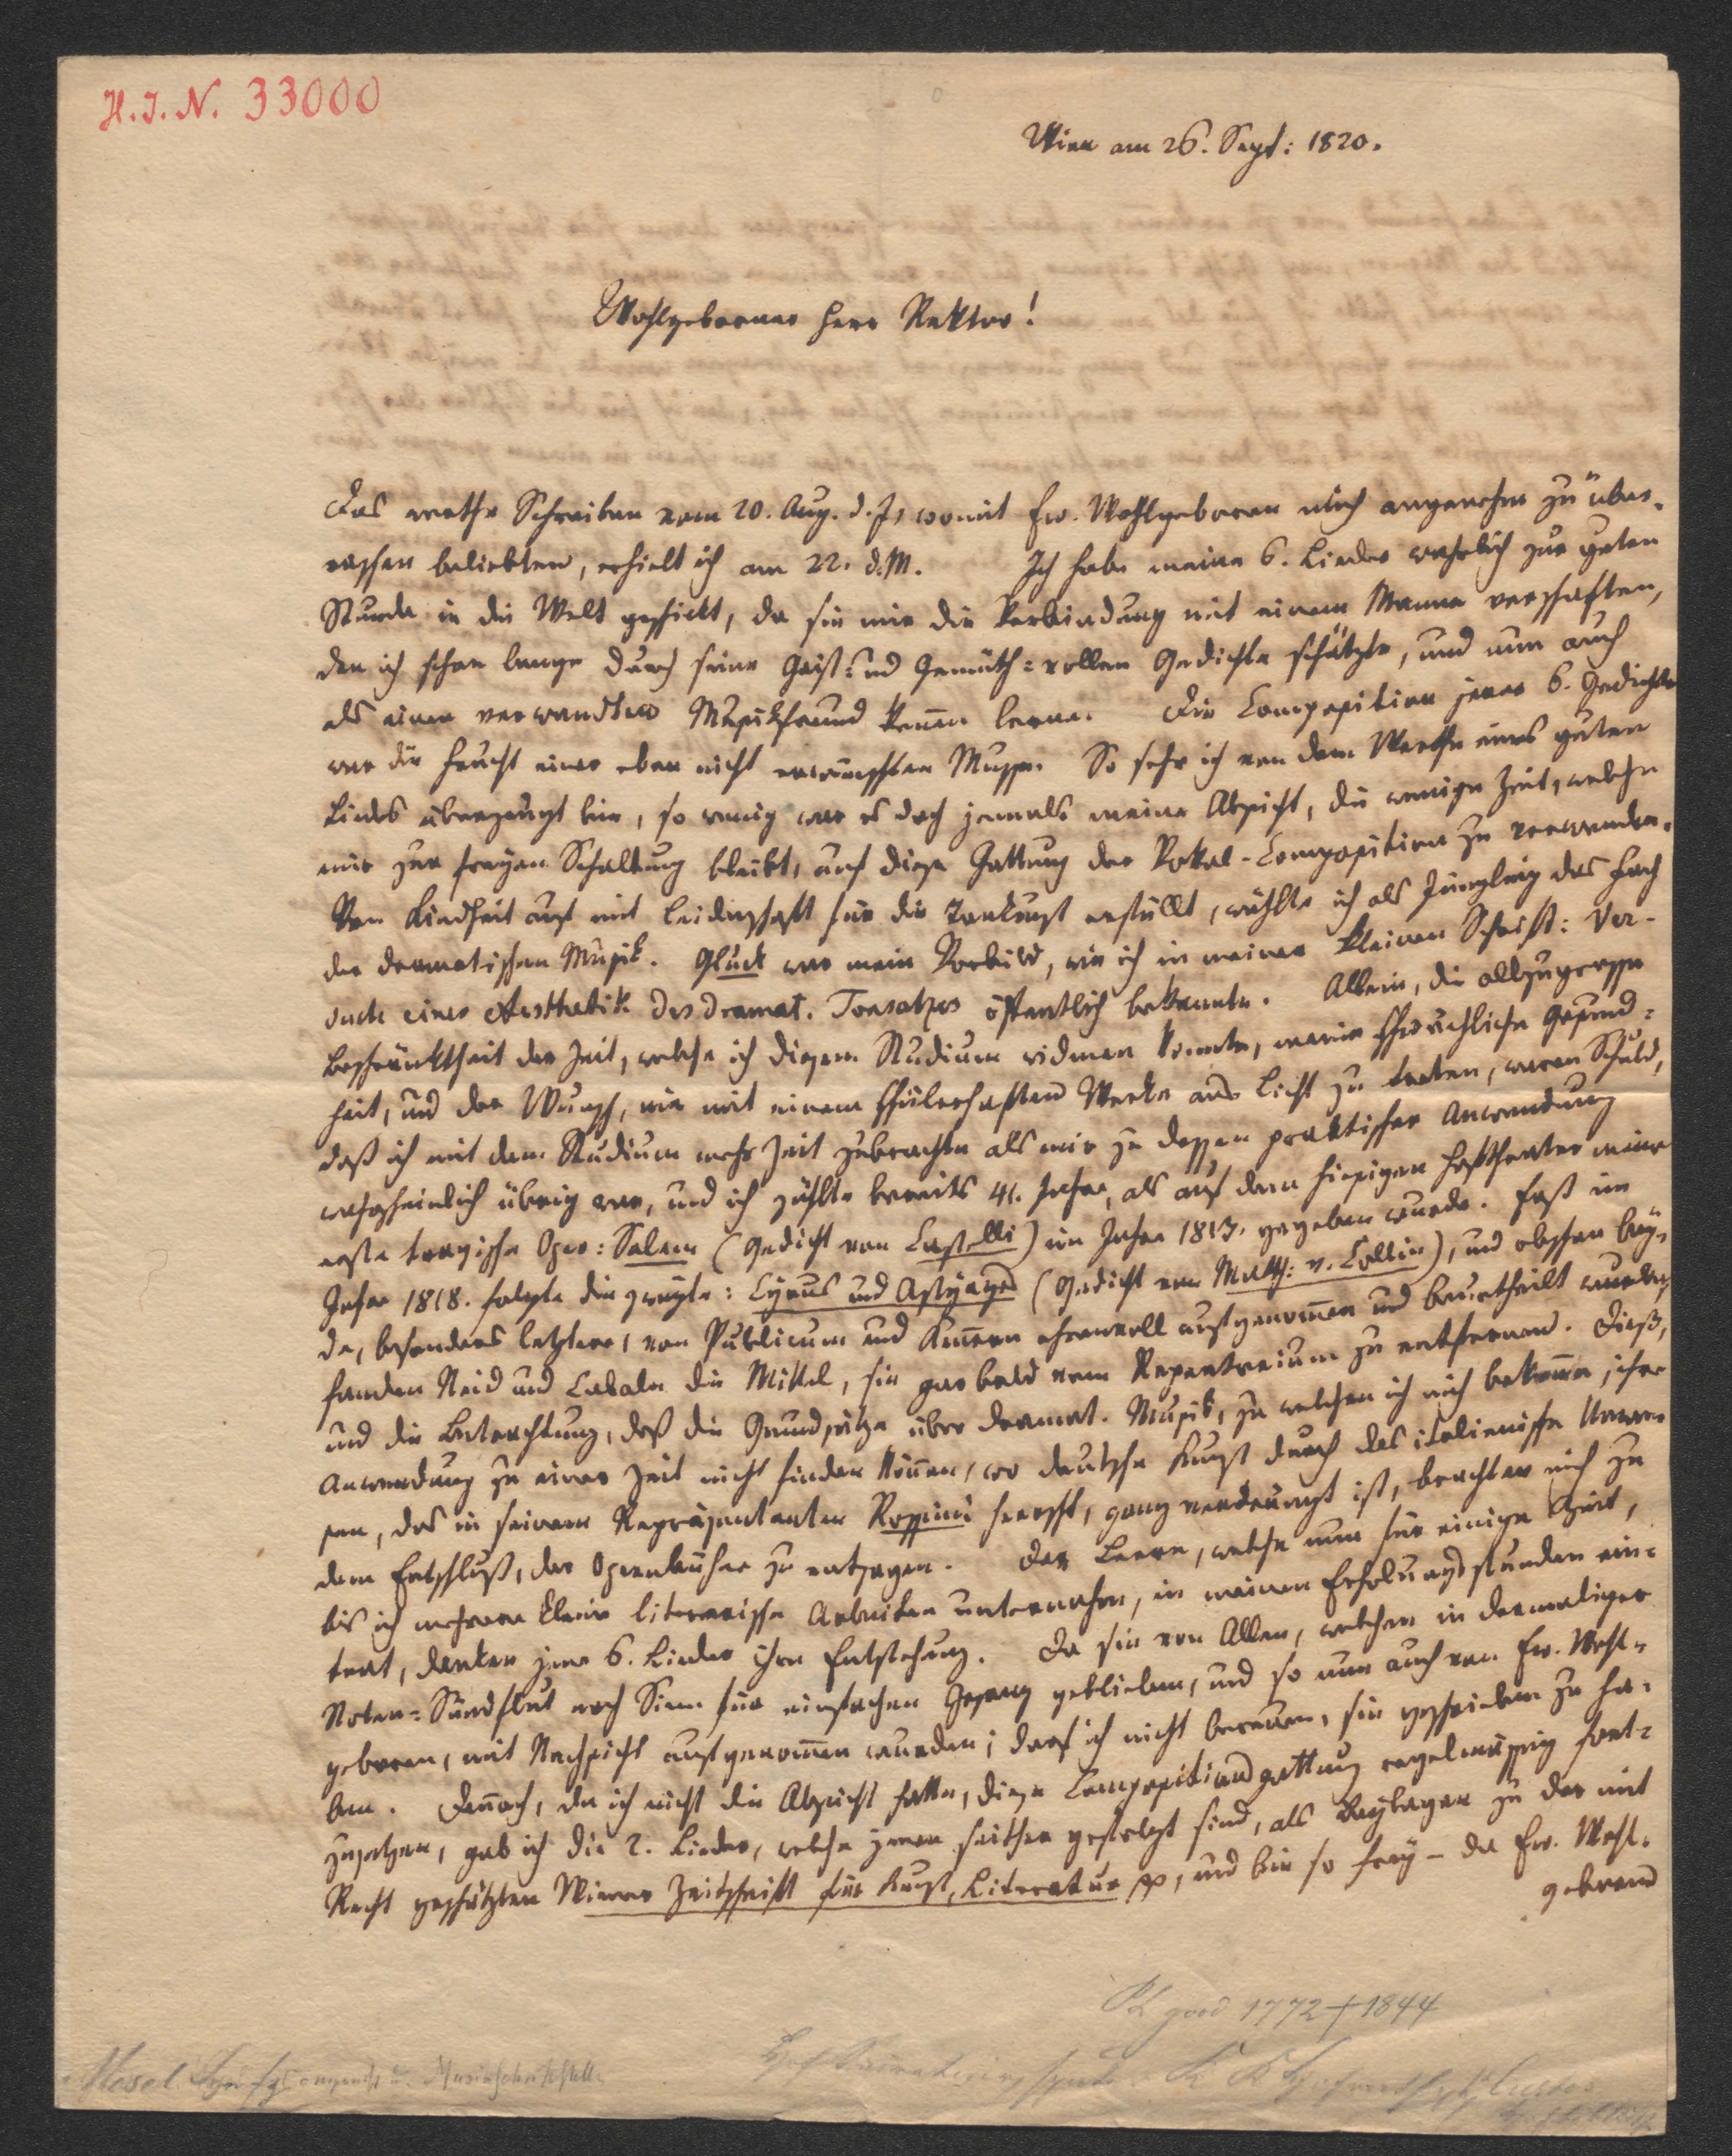 H.I.N. 33000
Wien am 26. Sept: 1820.
Wohlgeborner Herr Rektor!
Das werthe Schreiben vom 20. Aug. d. J, womit Ew. Wohlgeboren mich angenehm zu über-
raschen beliebten, erhielt ich am 22. d. M. Ich habe meine 6. Lieder wahrlich zur guten
Stunde in die Welt geschickt, da sie mir die Verbindung mit einem Manne verschaften,
den ich schon lange durch seine Geist- und Gemüth-vollen Gedichte schätzte, und nun auch
als einen verwandten Musikfreund kennen lerne. Die Composition jener 6. Gedichte
war die Frucht einer eben nicht erwünschten Musse. So sehr ich von dem Werthe eines guten
Liedes überzeugt bin, so wenig war es doch jemals meine Absicht, die wenige Zeit, welche
mir zur freyen Schaltung bleibt, auf diese Gattung der Vokal-Composition zu verwenden.
Von Kindheit auf mit Leidenschaft für die Tonkunst erfüllt, wählte ich als Jüngling das Fach
der dramatischen Musik. Gluck war mein Vorbild, wie ich in meiner kleinen Schrift: Ver-
such einer Aesthetik des dramat. Tonsatzes öffentlich bekannte. Allein, die allzugrosse
Beschränktheit der Zeit, welche ich diesem Studium widmen konnte, meine schwächliche Gesund-
heit, und der Wunsch, nie mit einem schülerhaften Werke ans Licht zu treten, waren Schuld,
daß ich mit dem Studium mehr Zeit zubrachte als mir zu dessen praktischer Anwendung
wahrscheinlich übrig war, und ich zählte bereits 41. Jahre, als auf dem hiesigen Hoftheater meine
erste tragische Oper: Salem (Gedicht von Castelli) im Jahre 1813. gegeben wurde. Erst im
Jahre 1818. folgte die zweyte: Cyrus und Astyages (Gedicht von Matth: v. Collin), und obschon bey-
de, besonders letztere, von Publicum und Kennern ehrenvoll aufgenommen und beurtheilt wurden,
fanden Neid und Cabale die Mittel, sie gar bald vom Repertorium zu entfernen. Dieß,
und die Betrachtung, daß die Grundsätze über dramat. Musik, zu welchen ich mich bekenne, ihre
Anwendung zu einer Zeit nicht finden können, wo deutsche Kunst durch das italienische Unwe-
sen, das in seinem Repräsentanten Rossini herrscht, ganz verdrängt ist, brachten mich zu
dem Entschluß, der Opernbühne zu entsagen. Der Leere, welche nun für einige Zeit,
bis ich mehrere kleine literarische Arbeiten unternahm, in meinen Erholungsstunden ein-
trat, danken jene 6. Lieder ihre Entstehung. Da sie von Allen, welchen in dermaliger
Noten-Sündflut noch Sinn für einfachen Gesang geblieben, und so nun auch von Ew. Wohl-
geboren, mit Nachsicht aufgenommen wurden; darf ich nicht bereuen, sie geschrieben zu ha-
ben. Dennoch, da ich nicht die Absicht hatte, diese Compositionsgattung regelmässig fort-
zusetzen, gab ich die 2. Lieder, welche jenen seither gefolgt sind, als Beylagen zu der mit
Recht geschätzten Wiener Zeitschrift für Kunst, Literatur pp, und bin so frey – da Ew. Wohl-
geboren
1772 † 1844
Mosel